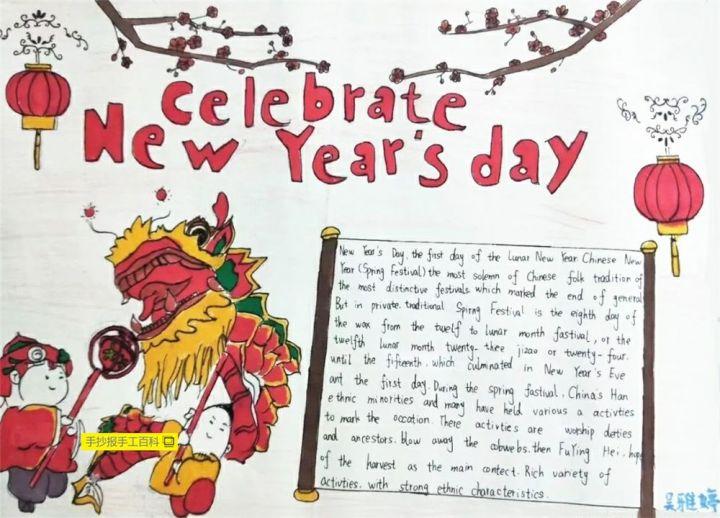 Celebrate
New Year's day
New Year's Day, the first day of the Lunar New Year Chinese New
Year (Spring Festival) the most solemn of Chinese folk tradition of
the most distinctive festivals. which marked the end of general
But in private. traditional Spirng Festival is the eighth day of
the wax from the twelf to lunar month fastival, or the
twelfth lunar month twenty-thkee jizao or twenty-four.
until the fifteenth, which culminated in New Year's Eve
ant the first day. During the spring fastival, China's Han
ethnic minorities and many have held various a activties
to mark the occation. There activties are worship deties
and ancestors. blow away the cobwebs. then FuYing Hei. hope
of the harvest as the main contect. Rich variety of
activties. with strong ethnic characteristics.
手抄报手工百科
吴雅婷